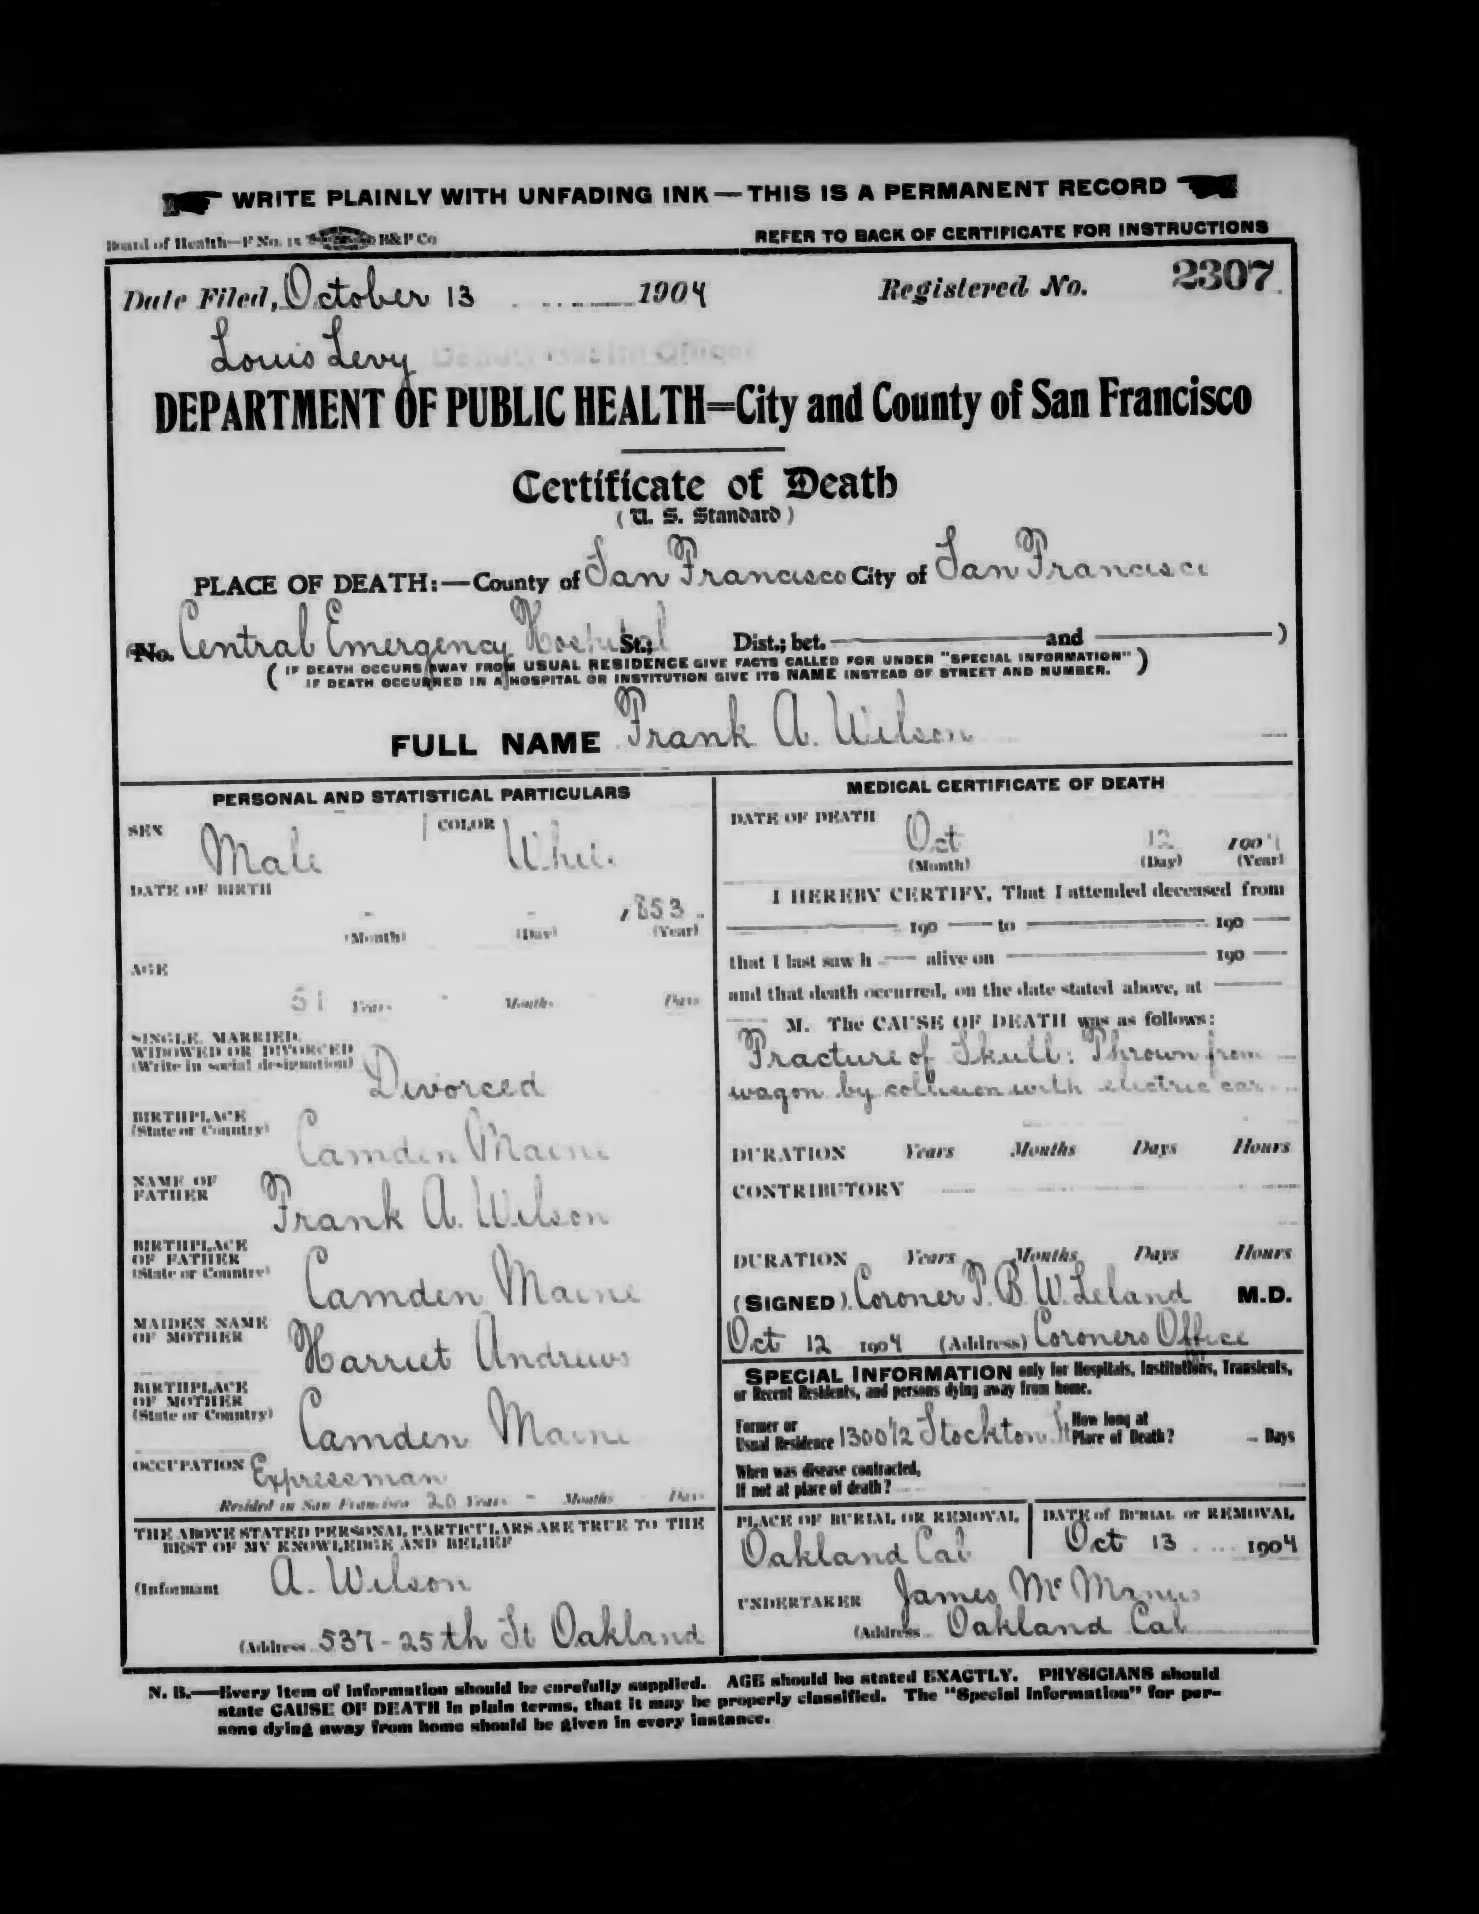 WRITE PLAINLY WITH UNFADING INK — THIS IS A PERMANENT RECORD
Board of Health—F No. 15 B&P Co
REFER TO BACK OF CERTIFICATE FOR INSTRUCTIONS
Date Filed, October 13 1904 Registered No. 2307
Louis Levy Deputy Health Officer
DEPARTMENT OF PUBLIC HEALTH=City and County of San Francisco
Certificate of Death
(U. S. Standard)
PLACE OF DEATH:—County of San Francisco City of San Francisco
No. Central Emergency Hospital St.; Dist.; bet. and )
( IF DEATH OCCURS AWAY FROM USUAL RESIDENCE GIVE FACTS CALLED FOR UNDER "SPECIAL INFORMATION" )
IF DEATH OCCURRED IN A HOSPITAL OR INSTITUTION GIVE ITS NAME INSTEAD OF STREET AND NUMBER.
FULL NAME Frank A. Wilson
PERSONAL AND STATISTICAL PARTICULARS
SEX Male COLOR White
DATE OF BIRTH
- - 1853
(Month) (Day) (Year)
AGE
51 Years - Months Days
SINGLE, MARRIED,
WIDOWED OR DIVORCED
(Write in social designation) Divorced
BIRTHPLACE
(State or Country) Camden Maine
NAME OF
FATHER Frank A. Wilson
BIRTHPLACE
OF FATHER
(State or Country) Camden Maine
MAIDEN NAME
OF MOTHER Harriet Andrews
BIRTHPLACE
OF MOTHER
(State or Country) Camden Maine
OCCUPATION Expressman
Resided in San Francisco 20 Years - Months Days
THE ABOVE STATED PERSONAL PARTICULARS ARE TRUE TO THE
BEST OF MY KNOWLEDGE AND BELIEF
(Informant A. Wilson
(Address 537-25th St Oakland
MEDICAL CERTIFICATE OF DEATH
DATE OF DEATH
Oct 12 1904
(Month) (Day) (Year)
I HEREBY CERTIFY, That I attended deceased from
190 to 190
that I last saw h alive on 190
and that death occurred, on the date stated above, at
M. The CAUSE OF DEATH was as follows:
Fracture of Skull: Thrown from
wagon by collision with electric car
DURATION Years Months Days Hours
CONTRIBUTORY
DURATION Years Months Days Hours
(SIGNED) Coroner T. B. W. Leland M.D.
Oct 12 1904 (Address) Coroners Office
SPECIAL INFORMATION only for Hospitals, Institutions, Transients,
or Recent Residents, and persons dying away from home.
Former or
Usual Residence 1300 1/2 Stockton St How long at
Place of Death? - Days
When was disease contracted,
If not at place of death?
PLACE OF BURIAL OR REMOVAL
Oakland Cal
DATE of BURIAL or REMOVAL
Oct 13 1904
UNDERTAKER James McManus
(Address Oakland Cal
N. B.—Every item of information should be carefully supplied. AGE should be stated EXACTLY. PHYSICIANS should
state CAUSE OF DEATH in plain terms, that it may be properly classified. The "Special Information" for per-
sons dying away from home should be given in every instance.